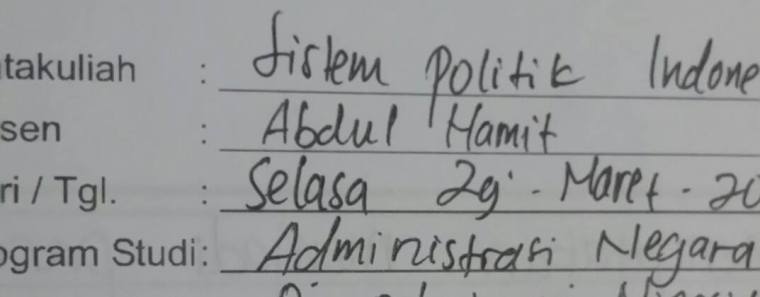 takuliah : Sistem Politik Indone
sen : Abdul Hamit
ri / Tgl. : Selasa 29 - Maret - 20
ogram Studi: Administrasi Negara